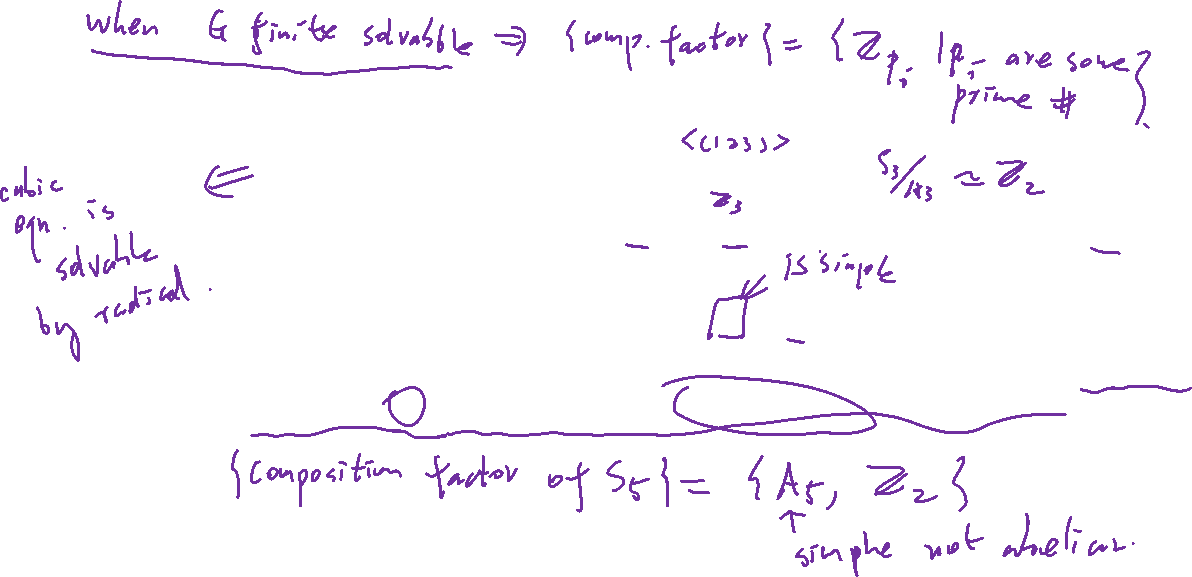 when G finite solvable ⇒ {comp. factor} = {ℤ_{p_i} | p_i are some
prime # }.
<(123)>
S_3/A_3 ≃ ℤ_2
ℤ_3
cubic
eqn. is
solvable
by radical.
⇐
is simple
{composition factor of S_5} = {A_5, ℤ_2}
↑
simple not abelian.